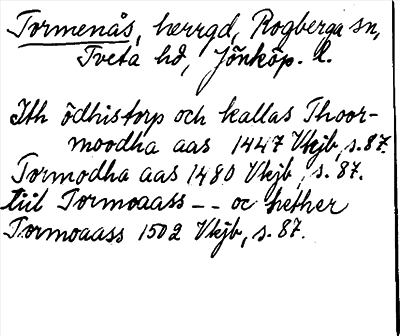 Tormenås, herrgd, Rogberga sn,
Tveta hd, Jönköp. l.
Ith ödhistorp och kallas Thoor-
moodha aas 1447 Vkjb, s. 87.
Tormodha aas 1480 Vkjb, s. 87.
tiil Tormoaass -- oc hether
Tormoaass 1502 Vkjb, s. 87.